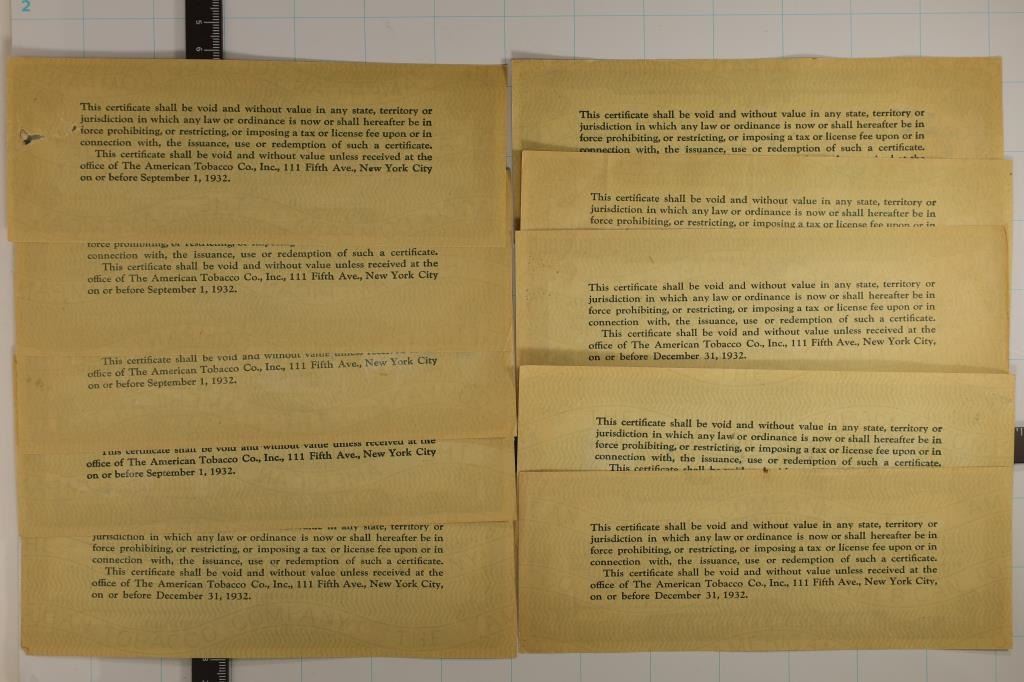 2
5
6
This certificate shall be void and without value in any state, territory or
jurisdiction in which any law or ordinance is now or shall hereafter be in
force prohibiting, or restricting, or imposing a tax or license fee upon or in
connection with, the issuance, use or redemption of such a certificate.
This certificate shall be void and without value unless received at the
office of The American Tobacco Co., Inc., 111 Fifth Ave., New York City
on or before September 1, 1932.
force prohibiting, or restricting, or imposing
connection with, the issuance, use or redemption of such a certificate.
This certificate shall be void and without value unless received at the
office of The American Tobacco Co., Inc., 111 Fifth Ave., New York City
on or before September 1, 1932.
This certificate shall be void and without value unless received at the
office of The American Tobacco Co., Inc., 111 Fifth Ave., New York City
on or before September 1, 1932.
This certificate shall be void and without value unless received at the
office of The American Tobacco Co., Inc., 111 Fifth Ave., New York City
on or before September 1, 1932.
in any state, territory or
jurisdiction in which any law or ordinance is now or shall hereafter be in
force prohibiting, or restricting, or imposing a tax or license fee upon or in
connection with, the issuance, use or redemption of such a certificate.
This certificate shall be void and without value unless received at the
office of The American Tobacco Co., Inc., 111 Fifth Ave., New York City,
on or before December 31, 1932.
This certificate shall be void and without value in any state, territory or
jurisdiction in which any law or ordinance is now or shall hereafter be in
force prohibiting, or restricting, or imposing a tax or license fee upon or in
connection with, the issuance, use or redemption of such a certificate.
at the
This certificate shall be void and without value in any state, territory or
jurisdiction in which any law or ordinance is now or shall hereafter be in
force prohibiting, or restricting, or imposing a tax or license fee upon or in
This certificate shall be void and without value in any state, territory or
jurisdiction in which any law or ordinance is now or shall hereafter be in
force prohibiting, or restricting, or imposing a tax or license fee upon or in
connection with, the issuance, use or redemption of such a certificate.
This certificate shall be void and without value unless received at the
office of The American Tobacco Co., Inc., 111 Fifth Ave., New York City,
on or before December 31, 1932.
This certificate shall be void and without value in any state, territory or
jurisdiction in which any law or ordinance is now or shall hereafter be in
force prohibiting, or restricting, or imposing a tax or license fee upon or in
connection with, the issuance, use or redemption of such a certificate.
This certificate shall be void
This certificate shall be void and without value in any state, territory or
jurisdiction in which any law or ordinance is now or shall hereafter be in
force prohibiting, or restricting, or imposing a tax or license fee upon or in
connection with, the issuance, use or redemption of such a certificate.
This certificate shall be void and without value unless received at the
office of The American Tobacco Co., Inc., 111 Fifth Ave., New York City,
on or before December 31, 1932.